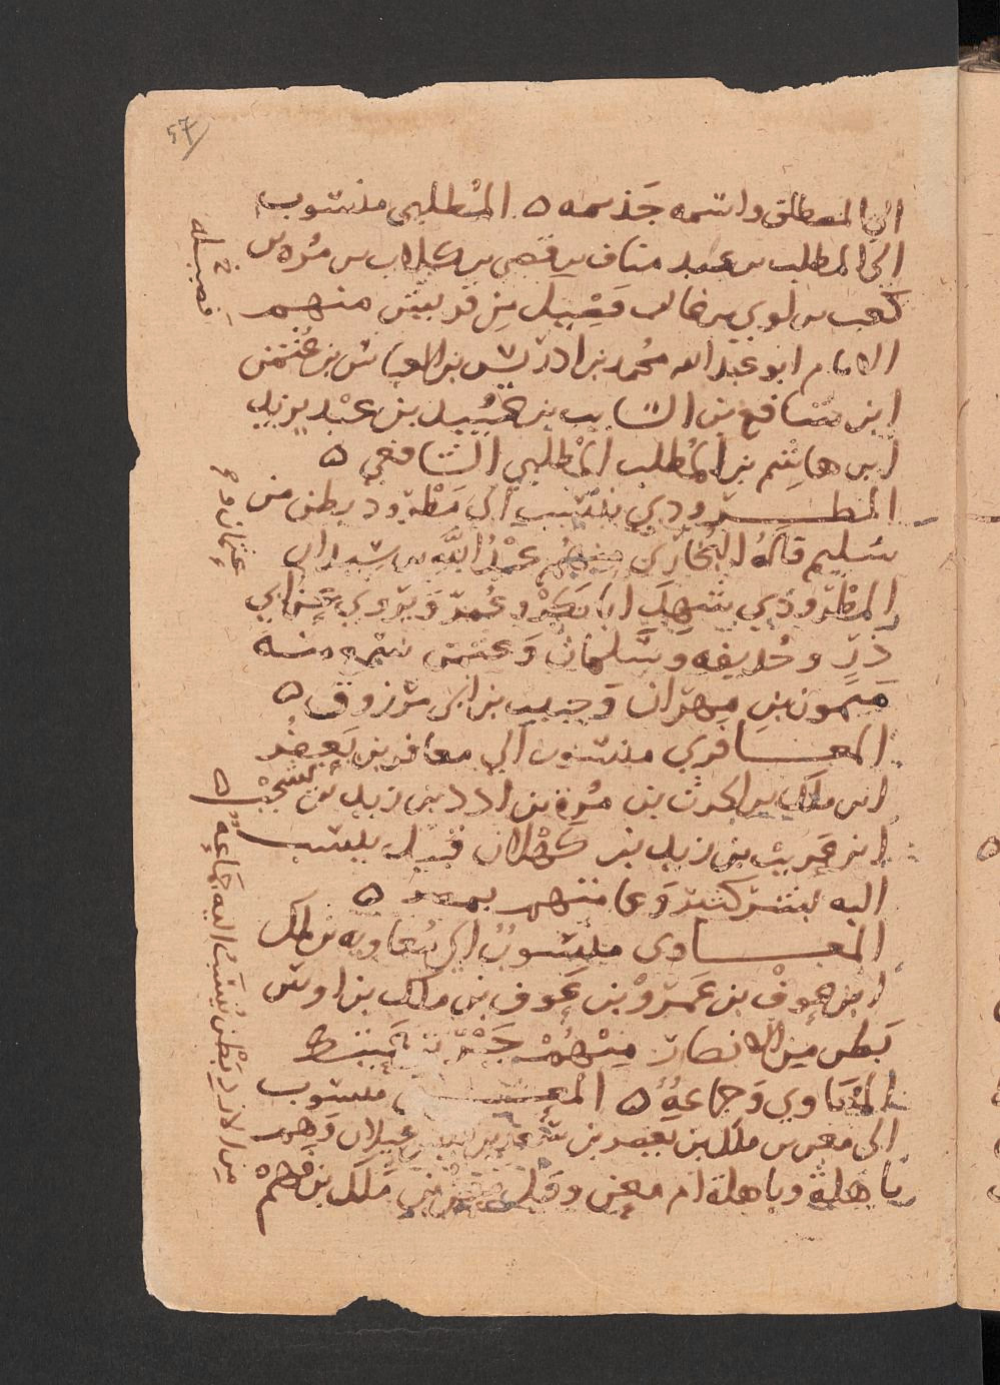 57
الى المصطلق واسمه جذيمه ه المطلبي منسوب
الى المطلب بن عبد مناف بن قصي بن كلاب بن مره بن
كعب بن لوي بن غالب قبيل من قريش منهم
الامام ابو عبد الله محمد بن ادريس بن العباس بن عثمن
ابن شافع بن السايب بن عبيد بن عبد يزيد
ابن هاشم بن المطلب المطلبي الشافعي ه
المطرودي ينسب الى مطرود بطن من
سليم قاله البخاري منهم عبد الله بن شداد
المطرودي شهد ابا بكر وعمر ويروي عن ابي
ذر وحذيفه وسلمان وعنه
ميمون بن مهران وحبيب بن ابي مرزوق ه
المعافري منسوب الى معافر بن يعفر
ابن ملك بن الحرث بن مره بن ادد بن زيد بن يشجب
ابن عريب بن زيد بن كهلان قبيل ينسب
اليه بشر كثير وعامتهم بمصر ه
المعاوى منسوب الى معاويه بن ملك
ابن عوف بن عمرو بن عوف بن ملك بن اوس
بطن من الانصار منهم جبر بن عتيك
المعاوي وجماعه ه منسوب
الى معن بن ملك بن يعصر بن عيلان وهم
باهلة وباهلة ام معن وقيل بن ملك بن فهم
من الازد بطن ينسب اليه جماعه ه